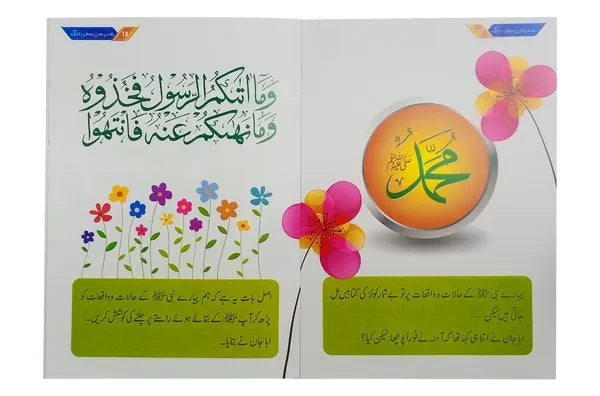 12
محمد ﷺ
پیارے نبی ﷺ کے حالات و واقعات پر تو بے شمار کوئز کی کتابیں مل
جاتی ہیں لیکن ......
ابا جان نے اتنا ہی کہا تھا کہ آمنہ نے فوراً پوچھا: لیکن کیا؟
13
وَمَا اٰتٰىكُمُ الرَّسُوْلُ فَخُذُوْهُ
وَمَا نَهٰىكُمْ عَنْهُ فَانْتَهُوْا
اصل بات یہ ہے کہ ہم پیارے نبی ﷺ کے حالات و واقعات کو
پڑھ کر آپ ﷺ کے بتائے ہوئے راستے پر چلنے کی کوشش کریں۔
ابا جان نے بتایا۔